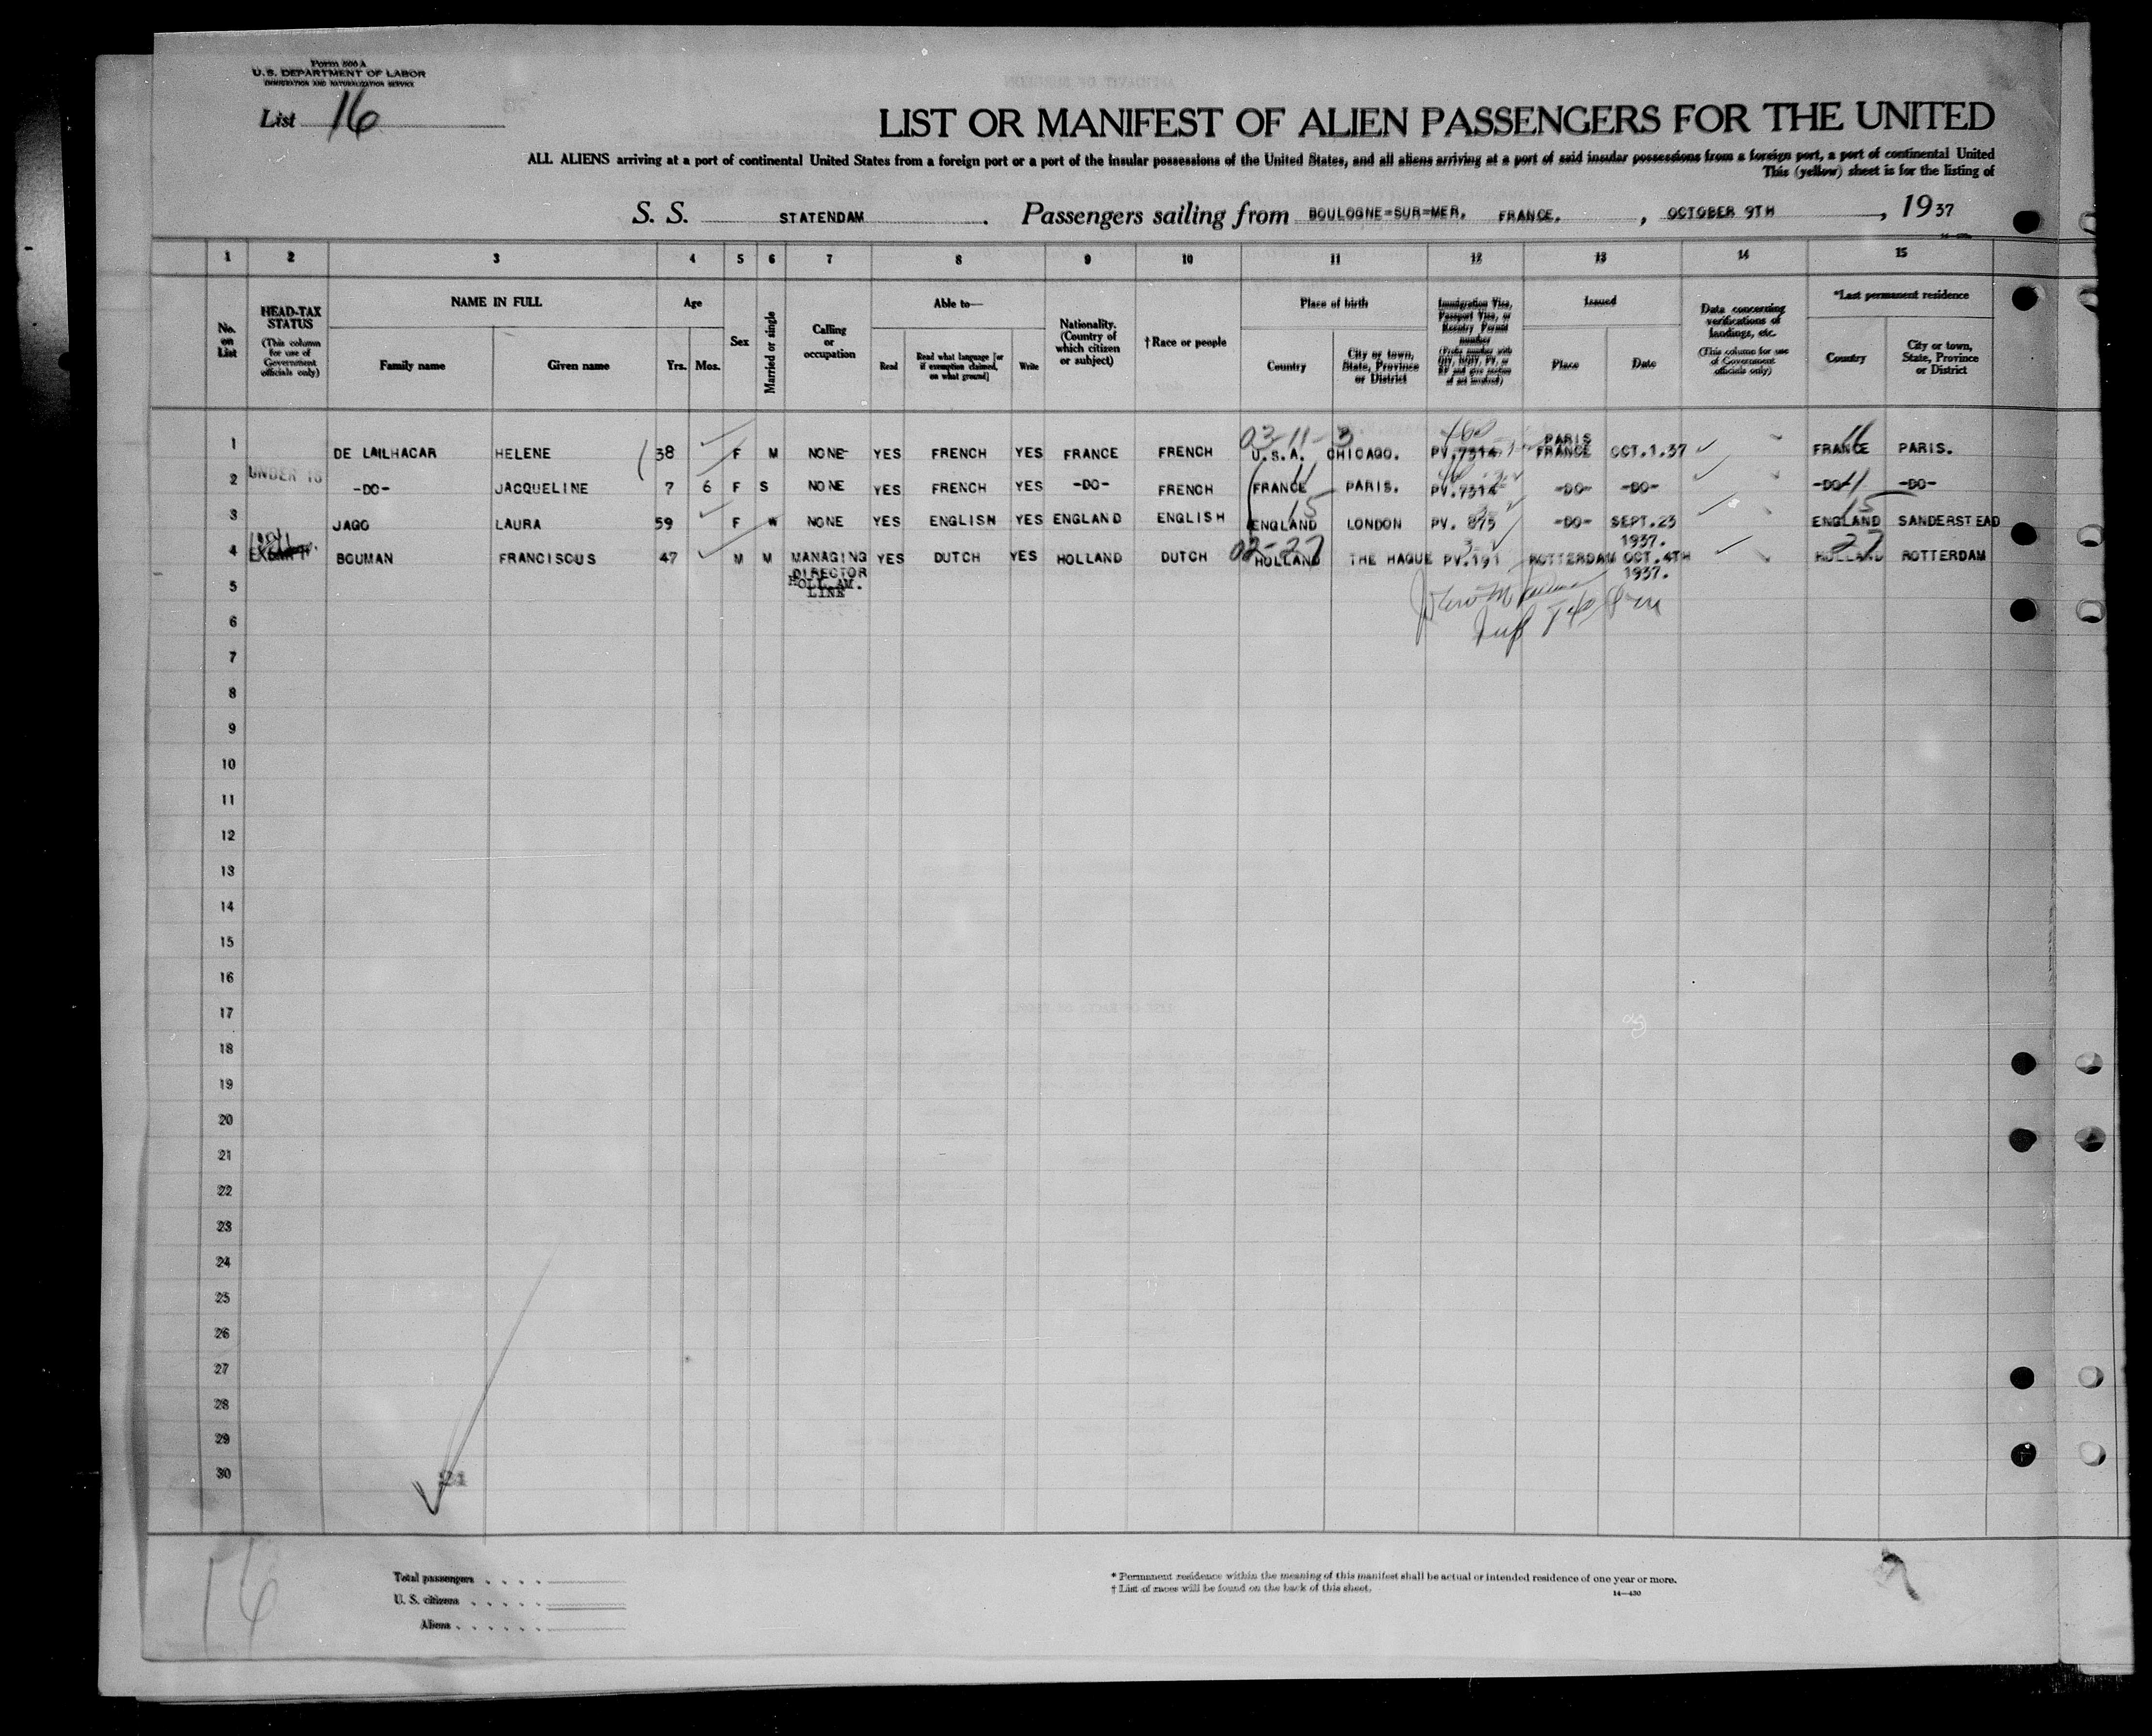 Form 500 A
U. S. DEPARTMENT OF LABOR
IMMIGRATION AND NATURALIZATION SERVICE
List 16
LIST OR MANIFEST OF ALIEN PASSENGERS FOR THE UNITED
ALL ALIENS arriving at a port of continental United States from a foreign port or a port of the insular possessions of the United States, and all aliens arriving at a port of said insular possessions from a foreign port, a port of continental United
This (yellow) sheet is for the listing of
S. S. STATENDAM. Passengers sailing from BOULOGNE=SUR=MER, FRANCE. , OCTOBER 9TH , 19 37
1 2 3 4 5 6 7 8 9 10 11 12 13 14 15
HEAD-TAX STATUS
(This column for use of Government officials only)
No. on List
NAME IN FULL
Family name
Given name
Age
Yrs.
Mos.
Sex
Married or single
Calling or occupation
Able to—
Read
Read what language [or if exemption claimed, on what ground]
Write
Nationality. (Country of which citizen or subject)
† Race or people
Place of birth
Country
City or town, State, Province or District
Immigration Visa, Passport Visa, or Reentry Permit number
Issued
Place
Date
Data concerning verifications of landings, etc.
(This column for use of Government officials only)
*Last permanent residence
Country
City or town, State, Province or District
03-11-3
PARIS
1 DE LAILHACAR HELENE 38 F M NONE YES FRENCH YES FRANCE FRENCH U.S.A. CHICAGO. PV.7314 FRANCE OCT.1.37 FRANCE PARIS.
UNDER 16
2 -DO- JACQUELINE 7 6 F S NONE YES FRENCH YES -DO- FRENCH FRANCE PARIS. PV.7314 -DO- -DO- -DO- -DO-
15 15
3 JAGO LAURA 59 F W NONE YES ENGLISH YES ENGLAND ENGLISH ENGLAND LONDON PV. 875 -DO- SEPT.23 1937. ENGLAND SANDERSTEAD
02-27 27
4 BOUMAN FRANCISCUS 47 M M MANAGING DIRECTOR HOLL.AM. LINE YES DUTCH YES HOLLAND DUTCH HOLLAND THE HAGUE PV.191 ROTTERDAM OCT.4TH 1937. HOLLAND ROTTERDAM
5
6
7
8
9
10
11
12
13
14
15
16
17
18
19
20
21
22
23
24
25
26
27
28
29
30
16
Total passengers
U. S. citizens
Aliens
* Permanent residence within the meaning of this manifest shall be actual or intended residence of one year or more.
† List of races will be found on the back of this sheet.
14—430